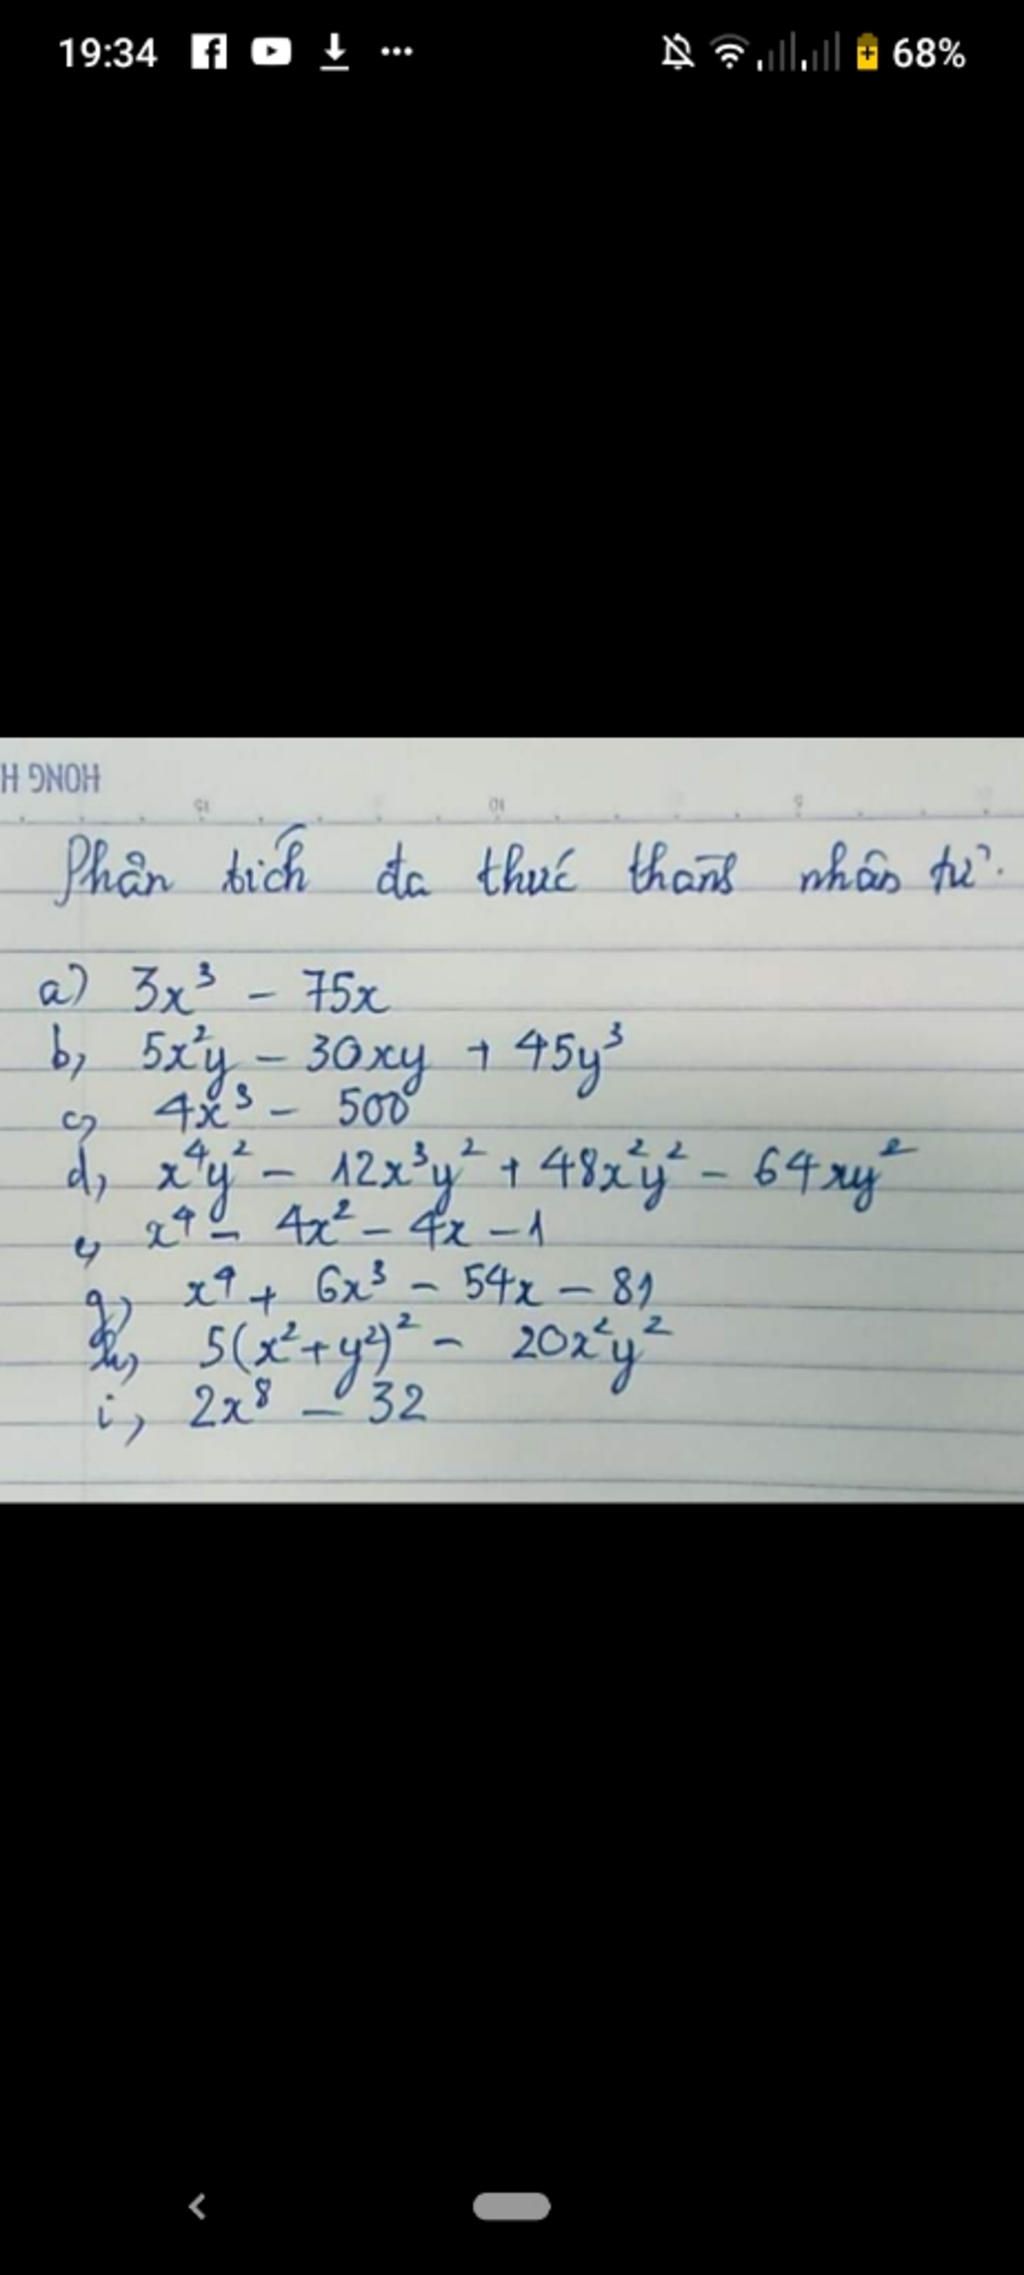 19:34 68%
HONG H
15 10 5
Phân tích đa thức thành nhân tử.
a) 3x³ - 75x
b, 5x²y - 30xy + 45y³
c, 4x³ - 500
d, x⁴y² - 12x³y² + 48x²y² - 64xy²
e, x⁴ - 4x² - 4x - 1
g, x⁴ + 6x³ - 54x - 81
h, 5(x²+y²)² - 20x²y²
i, 2x⁸ - 32